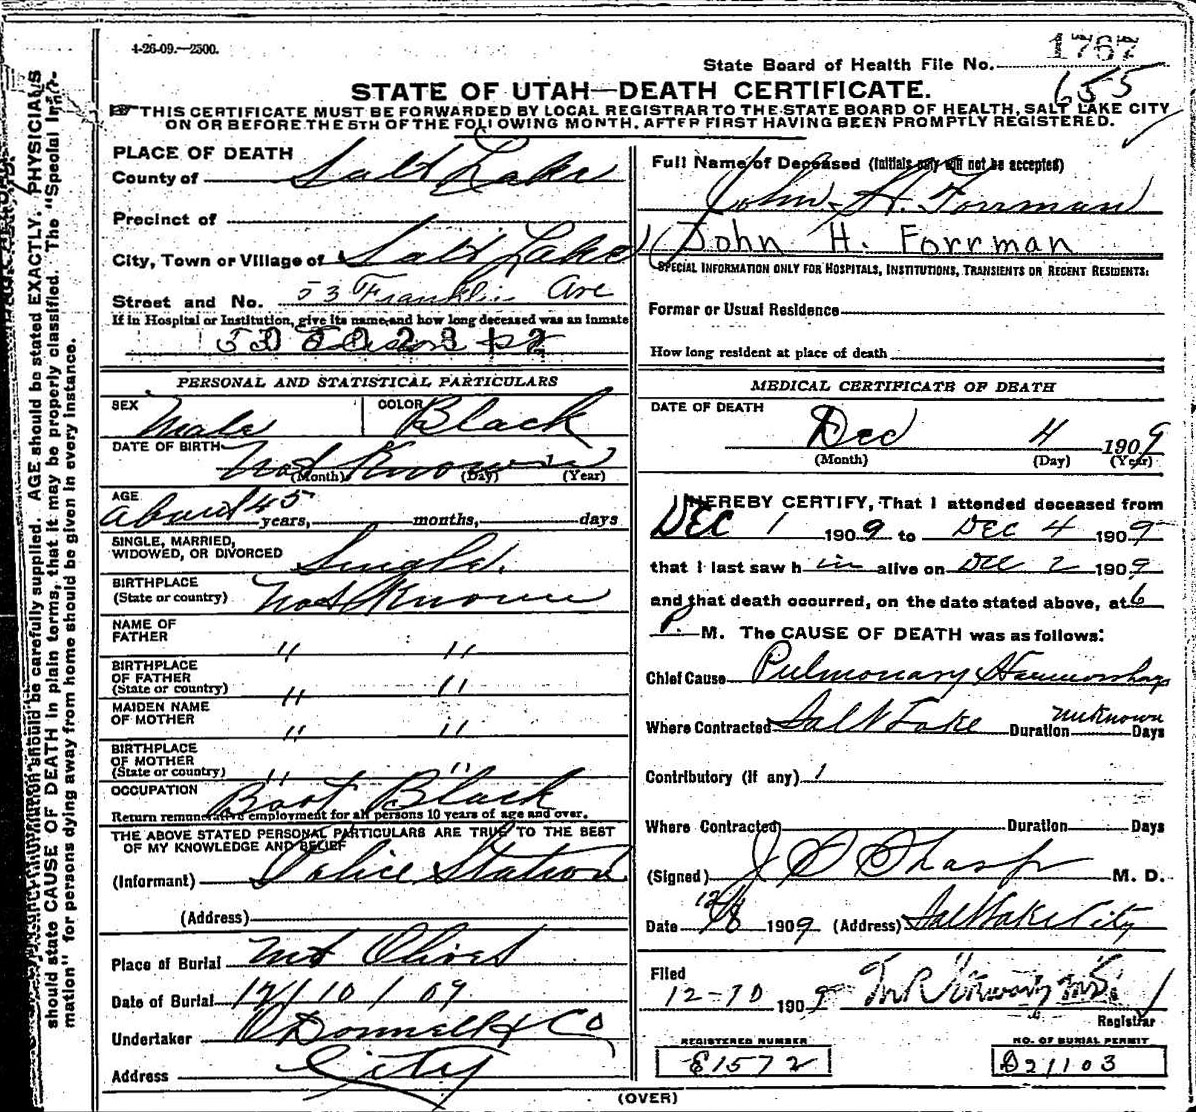 4-26-09.—2500.
1767
State Board of Health File No.
655
STATE OF UTAH—DEATH CERTIFICATE.
THIS CERTIFICATE MUST BE FORWARDED BY LOCAL REGISTRAR TO THE STATE BOARD OF HEALTH, SALT LAKE CITY
ON OR BEFORE THE 5TH OF THE FOLLOWING MONTH, AFTER FIRST HAVING BEEN PROMPTLY REGISTERED.
PLACE OF DEATH
County of Salt Lake
Precinct of
City, Town or Village of Salt Lake
Street and No. 53 Franklin Ave
If in Hospital or Institution, give its name and how long deceased was an inmate
PERSONAL AND STATISTICAL PARTICULARS
SEX Male COLOR Black
DATE OF BIRTH Not Known
(Month) (Day) (Year)
AGE About 45 years, months, days
SINGLE, MARRIED,
WIDOWED, OR DIVORCED Single.
BIRTHPLACE
(State or country) Not Known
NAME OF
FATHER " "
BIRTHPLACE
OF FATHER
(State or country) " "
MAIDEN NAME
OF MOTHER " "
BIRTHPLACE
OF MOTHER
(State or country) " "
OCCUPATION Boot Black
Return remunerative employment for all persons 10 years of age and over.
THE ABOVE STATED PERSONAL PARTICULARS ARE TRUE TO THE BEST
OF MY KNOWLEDGE AND BELIEF
(Informant) Police Station
(Address)
Place of Burial Mt Olivet
Date of Burial 12/10/09
Undertaker O'Donnell & Co
Address City
Full Name of Deceased (Initials only will not be accepted)
John H. Forrman
(John H. Forrman
SPECIAL INFORMATION ONLY FOR HOSPITALS, INSTITUTIONS, TRANSIENTS OR RECENT RESIDENTS:
Former or Usual Residence
How long resident at place of death
MEDICAL CERTIFICATE OF DEATH
DATE OF DEATH
Dec 4 1909
(Month) (Day) (Year)
I HEREBY CERTIFY, That I attended deceased from
DEC 1 1909 to DEC 4 1909
that I last saw him alive on DEC 2 1909
and that death occurred, on the date stated above, at 6
P. M. The CAUSE OF DEATH was as follows:
Chief Cause Pulmonary Haemorrhage
Where Contracted Salt Lake Duration unknown Days
Contributory (if any)
Where Contracted Duration Days
(Signed) J P Sharp M. D.
Date 12/8 1909 (Address) Salt Lake City
Filed
12-10 1909
Registrar
REGISTERED NUMBER
E1572
NO. OF BURIAL PERMIT
D21103
(OVER)
should be carefully supplied. AGE should be stated EXACTLY. PHYSICIANS
should state CAUSE OF DEATH in plain terms, that it may be properly classified. The "Special Infor-
mation" for persons dying away from home should be given in every instance.